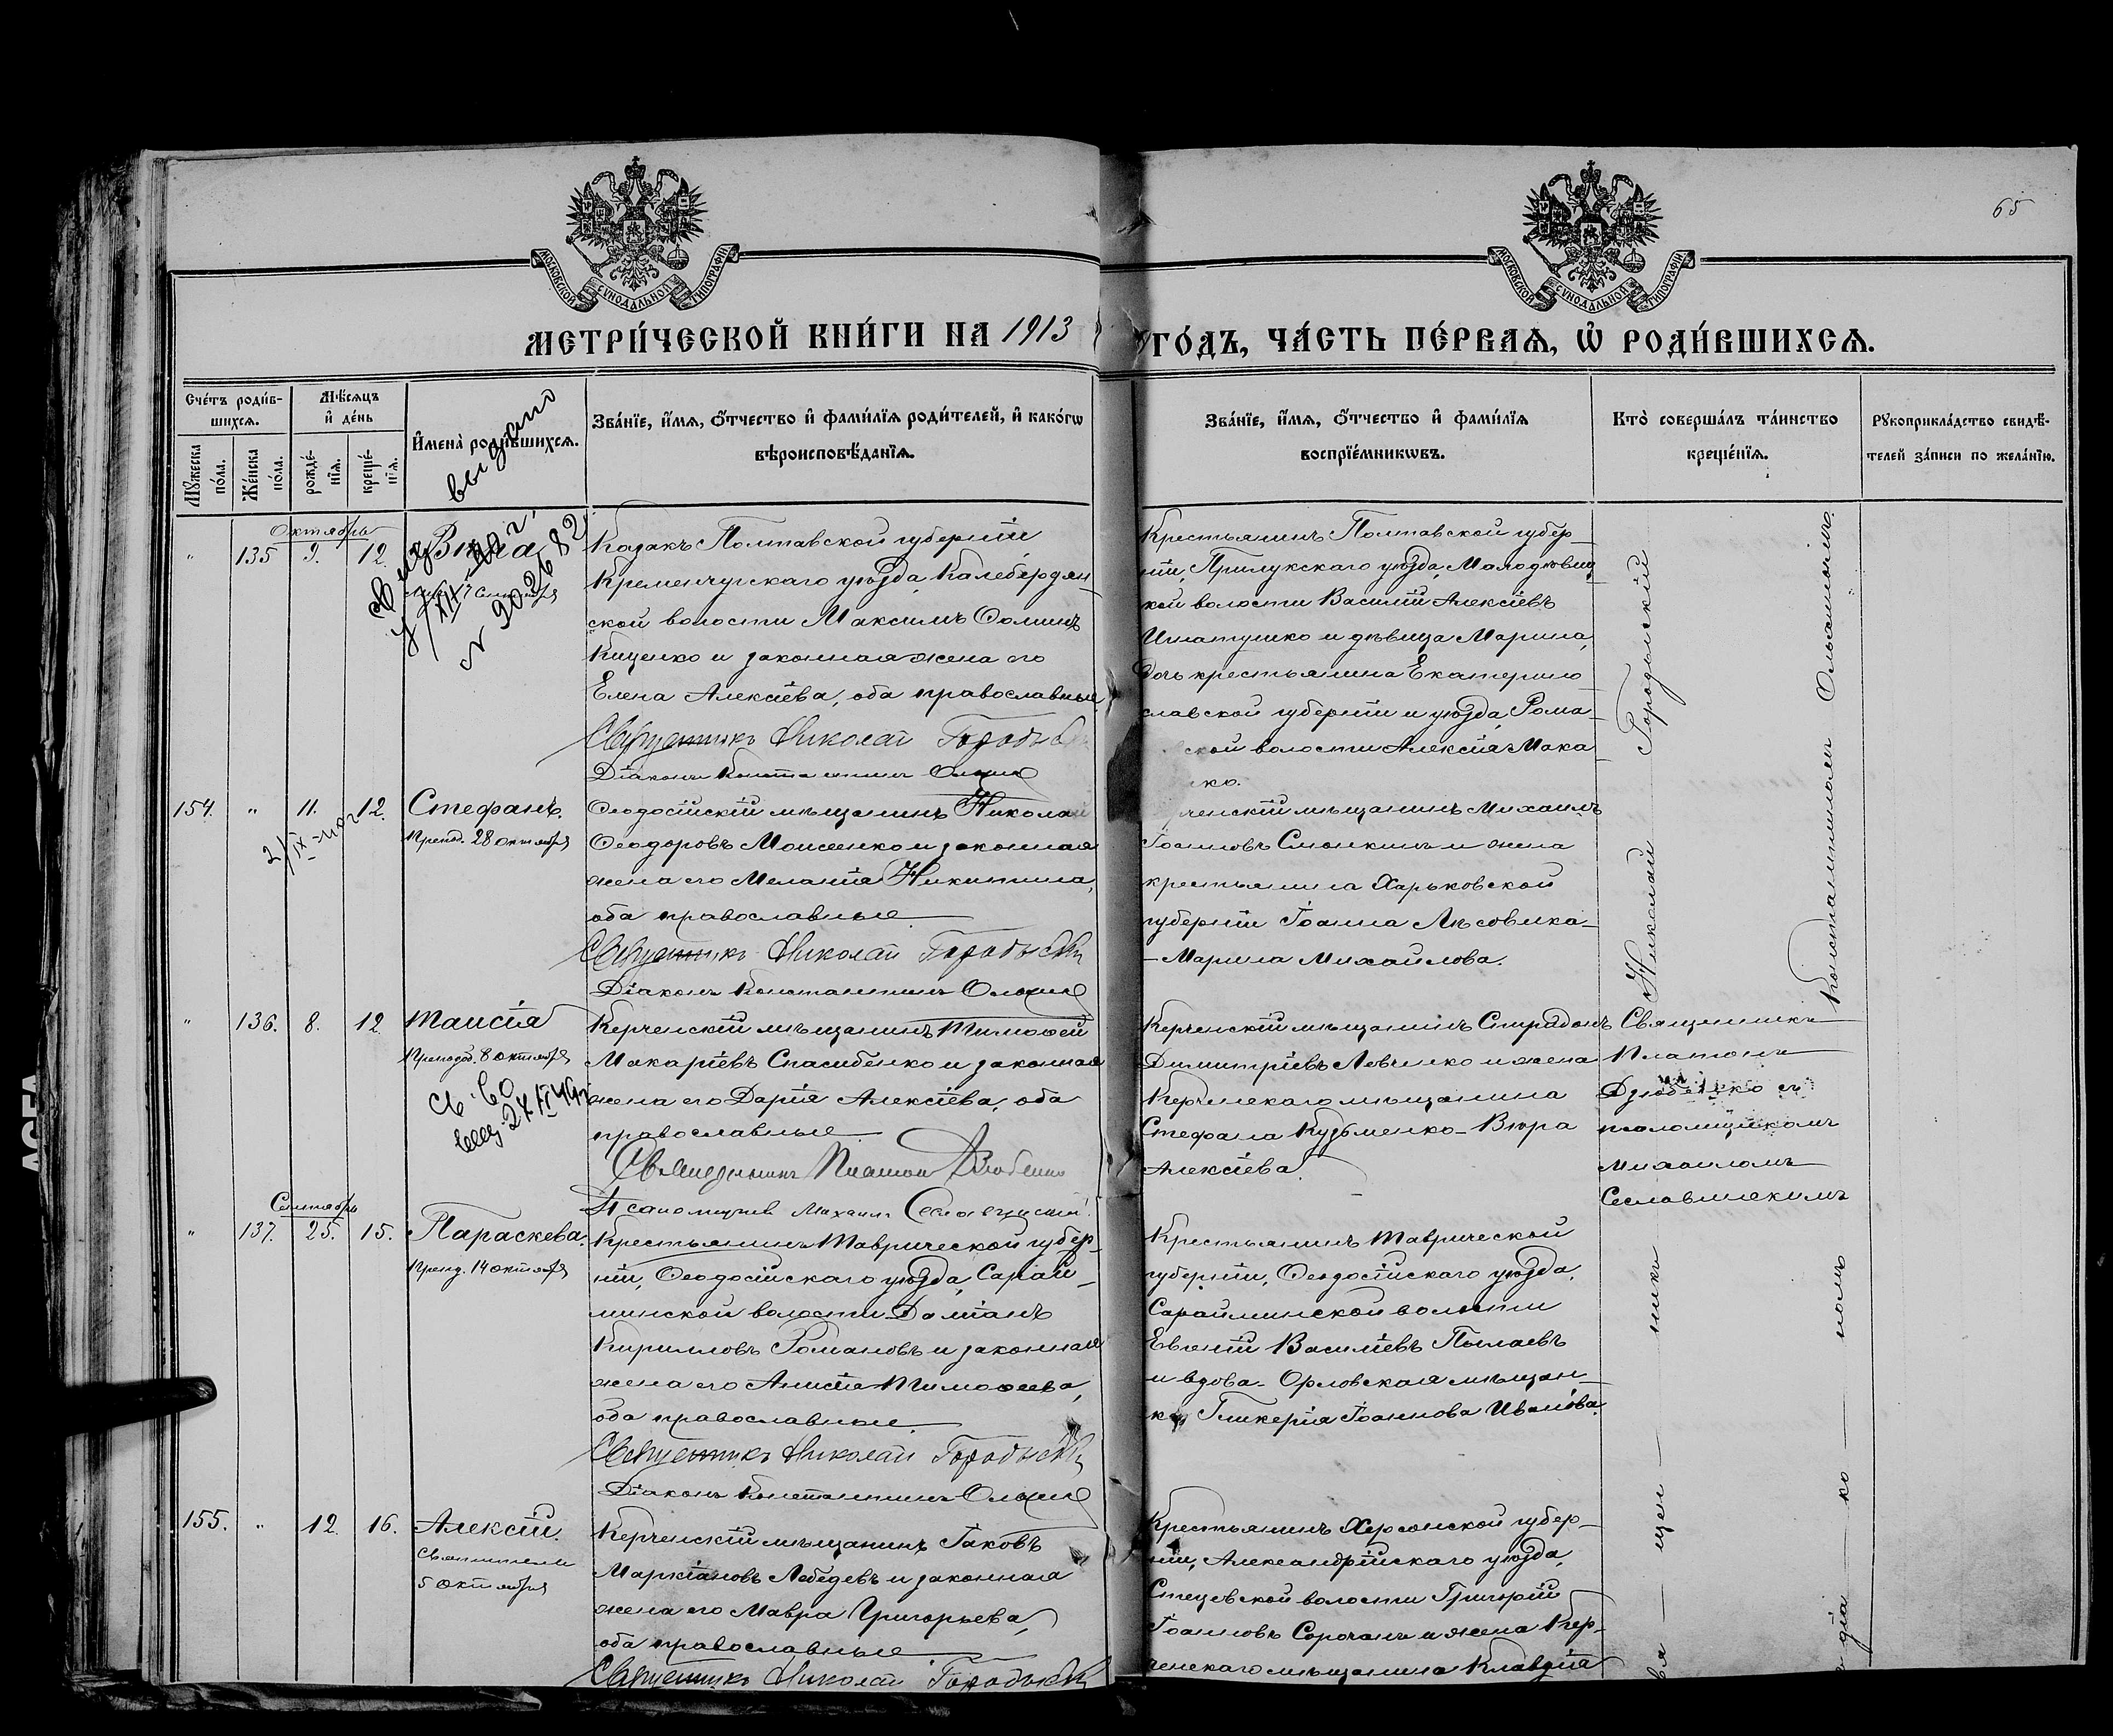 65
МОСКОВСКОЙ СѴНОДАЛЬНОЙ ТИПОГРАФІИ
МОСКОВСКОЙ СѴНОДАЛЬНОЙ ТИПОГРАФІИ
МЕТРИ́ЧЕСКОЙ КНИ́ГИ НА 1913
ГО́ДЪ, ЧА́СТЬ ПЕ́РВАѦ, Ѡ҆ РОДИ́ВШИХСѦ.
Сче́тъ роди́в-
шихсѧ.
Мꙋ́жеска по́ла.
Же́нска по́ла.
Мѣ́сѧцъ
и҆ де́нь
рожде́-нїѧ.
креще́-нїѧ.
И҆мена̀ роди́вшихсѧ.
выдано
Зва́нїе, и҆́мѧ, ѻ҆́тчество и҆ фами́лїѧ роди́телей, и҆ како́гѡ
вѣроисповѣ́данїѧ.
Зва́нїе, и҆́мѧ, ѻ҆́тчество и҆ фами́лїѧ
воспрїе́мникѡвъ.
Кто̀ соверша́лъ та́инство
креще́нїѧ.
Рꙋкоприкла́дство свидѣ́-
телей за́писи по жела́нїю.
Октябрь
" 135 9. 12.
№ 902682
Казакъ Полтавской губерніи
Кременчугскаго уѣзда, Калебердян-
ской волости Максимъ Ѳоминъ
Киценко и законная жена его
Елена Алексіева, оба православные
Священникъ Николай Городыскій
Діаконъ Константинъ
Крестьянинъ Полтавской губер-
ніи, Прилукскаго уѣзда,
кой волости Василій Алексіевъ
Игнатушко и дѣвица Марина,
дочь крестьянина Екатерино-
славской губерніи и уѣзда, Рома-
ской волости Алексія Мака
ко.
154. " 11. 12. Стефанъ.
Препод. 28 октября
Ѳеодосійскій мѣщанинъ Николай
Ѳеодоровъ Моисеенко и законная
жена его Меланія Никитина,
оба православные
Священникъ Николай Городыскій
Діаконъ Константинъ
ченскій мѣщанинъ Михаилъ
Іоанновъ Смонкинъ и жена
крестьянина Харьковской
губерніи Іоанна Лѣсовика-
-Марина Михайлова.
" 136. 8. 12. Таисія
Преподоб. 8 октября
Керченскій мѣщанинъ Тимоѳей
Макаріевъ Спасибенко и законная
жена его Дарія Алексіева, оба
православные
Священникъ Платонъ Дзюбенко
Псаломщикъ Михаилъ Сеславинскій
Керченскій мѣщанинъ Спиридонъ
Димитріевъ Левченко и жена
Керченскаго мѣщанина
Стефана Кузьменко-Вюра
Алексіева.
Священникъ
Платонъ
Дзюбенко съ
псаломщикомъ
Михаиломъ
Сеславинскимъ
Сентябрь
" 137. 25. 15. Параскева.
Препд. 14 октября
Крестьянинъ Таврической губер-
ніи, Ѳеодосійскаго уѣзда, Сарай-
минской волости Даміанъ
Кирилловъ Романовъ и законная
жена его Анисія Тимоѳеева,
оба православные.
Священникъ Николай Городыскій
Діаконъ Константинъ
Крестьянинъ Таврической
губерніи, Ѳеодосійскаго уѣзда,
Сарайминской волости
Евгеній Василіевъ Пылаевъ
и вдова- Орловская мѣщан-
ка Гликерія Іоаннова Иванова.
155. " 12. 16. Алексій.
Святителя
5 октября
Керченскій мѣщанинъ Іаковъ
Маркіановъ Лебедевъ и законная
жена его Мавра Григорьева,
оба православные
Священникъ Николай Городыскій
Крестьянинъ Херсонской губер-
ніи, Александрійскаго уѣзда,
Стецовской волости Григорій
Іоанновъ Сорочанъ и жена Кер-
ченскаго мѣщанина Клавдія
Николай Городыскій
Константиномъ
вя — щен — никъ
діа — ко — номъ